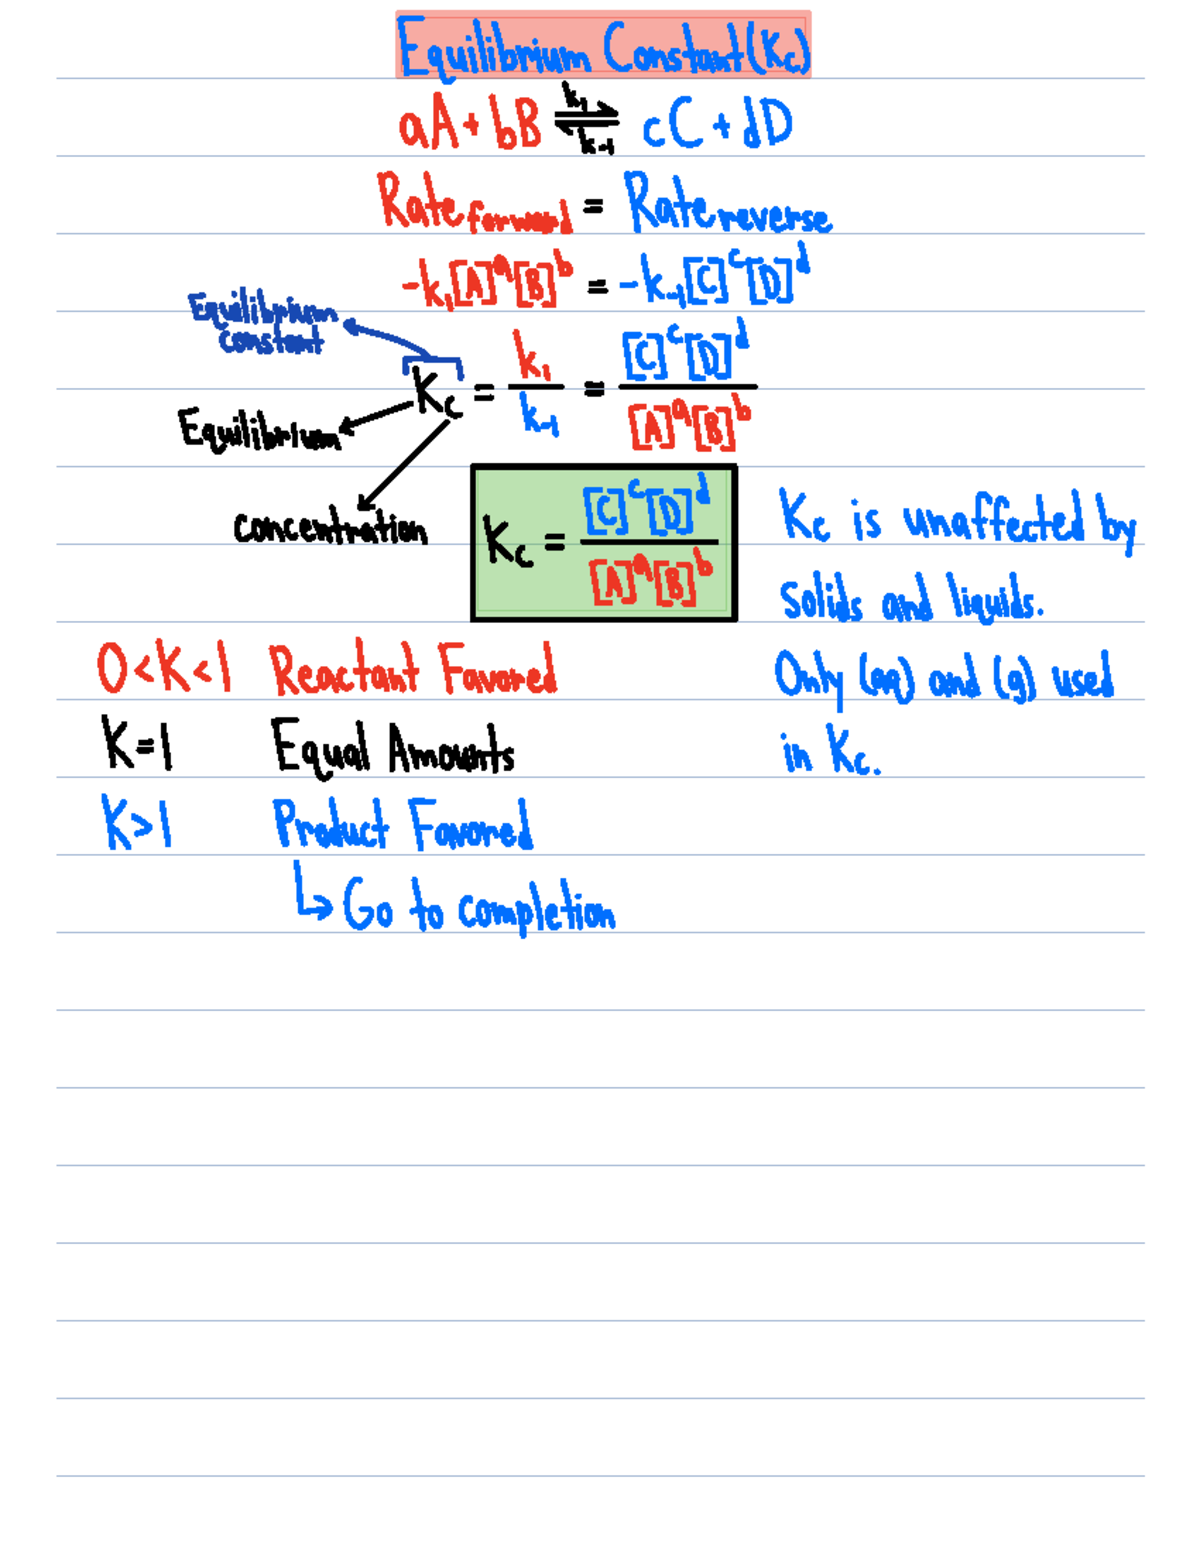 Equilibrium Constant (Kc)
aA + bB ⇌ cC + dD
k₁
k₋₁
Rate forward = Rate reverse
-k₁[A]ᵃ[B]ᵇ = -k₋₁[C]ᶜ[D]ᵈ
Equilibrium
constant
Kc = k₁/k₋₁ = [C]ᶜ[D]ᵈ/[A]ᵃ[B]ᵇ
Equilibrium
concentration
Kc = [C]ᶜ[D]ᵈ/[A]ᵃ[B]ᵇ
Kc is unaffected by
solids and liquids.
Only (aq) and (g) used
in Kc.
0<K<1 Reactant Favored
K=1 Equal Amounts
K>1 Product Favored
↳ Go to completion